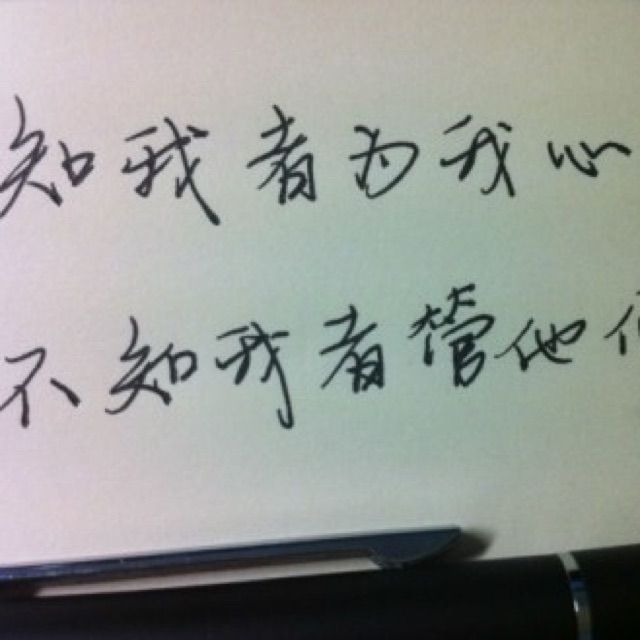 知我者为我心
不知我者管他